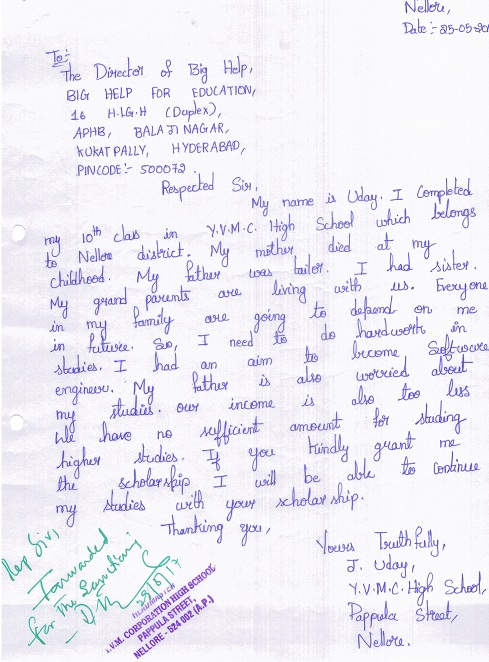 Nellore,
Date :- 25-05-20
To:-
The Director of Big Help,
BIG HELP FOR EDUCATION,
16 H.I.G.H (Duplex),
APHB, BALAJI NAGAR,
KUKATPALLY, HYDERABAD,
PINCODE:- 500072.
Respected Sir,
My name is Uday. I Completed
my 10th class in Y.V.M.C. High School which belongs
to Nellore district. My mother died at my
childhood. My father was tailor. I had sister.
My grand parents are living with us. Everyone
in my family are going to defend on me
in future. So, I need to do hardwork in
studies. I had an aim to become Software
engineer. My father is also worried about
my studies. our income is also too less
We have no sufficient amount for studing
higher studies. If you kindly grant me
the scholarship I will be able to continue
my studies with your scholarship.
Thanking you,
Yours Truthfully,
J. Uday,
Y.V.M.C. High School,
Pappula Street,
Nellore.
Resp Sir,
Forwarded
for the Sanctioning
V.M. CORPORATION HIGH SCHOOL
PAPPULA STREET,
NELLORE - 524 002 (A.P.)